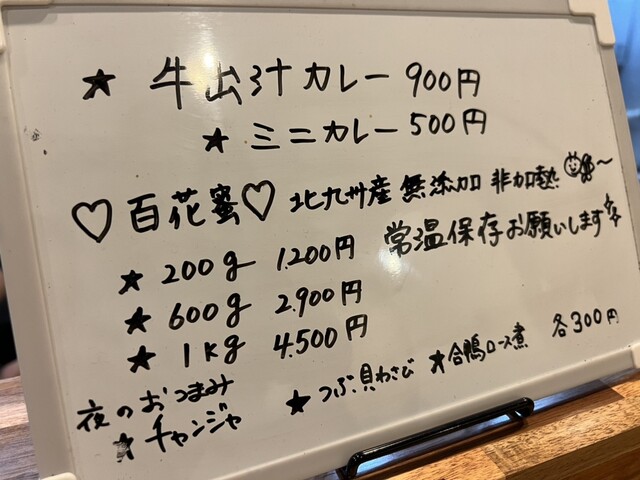 ★ 牛出汁カレー 900円
★ ミニカレー 500円
♡百花蜜♡ 北九州産 無添加 非加熱
常温保存お願いします
★ 200g 1.200円
★ 600g 2.900円
★ 1kg 4.500円
夜のおつまみ
★ チャンジャ ★ つぶ貝わさび ★ 合鴨ロース煮 各300円